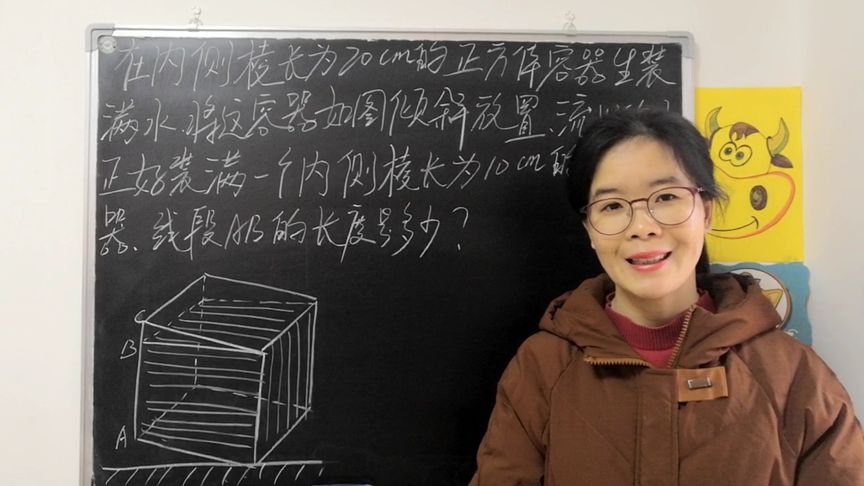 在内侧棱长为20cm的正方体容器里装
满水.将这容器如图倾斜放置.流
正好装满一个内侧棱长为10cm
器.线段AB的长度是多少?
C
B
A